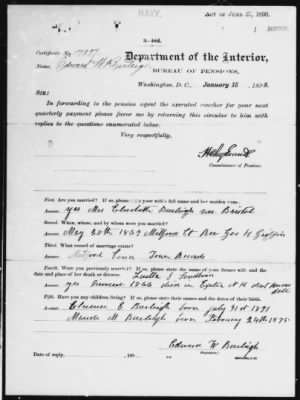 NAVY.
ACT OF JUNE 27, 1890.
3-402.
Certificate No.
Name, Edward W. Burleigh
Department of the Interior,
BUREAU OF PENSIONS,
Washington, D. C., January 15, 1898.
SIR:
In forwarding to the pension agent the executed voucher for your next
quarterly payment please favor me by returning this circular to him with
replies to the questions enumerated below.
Very respectfully,
H Clay Evans
Commissioner of Pensions.
First. Are you married? If so, please state your wife's full name and her maiden name.
Answer. yes Mrs Elizabeth Burleigh nee Bristol
Second. When, where, and by whom were you married?
Answer. May 20th 1869 Milford Ct Rev Geo H Griffin
Third. What record of marriage exists?
Answer. Milford Conn Town Records
Fourth. Were you previously married? If so, please state the name of your former wife and the
date and place of her death or divorce. Luella J
Answer. yes 1866 died in Exeter N H
Fifth. Have you any children living? If so, please state their names and the dates of their birth.
Answer. E Burleigh born July 31st 1871
Maude M Burleigh born February 24th 1875
Edward W Burleigh
Date of reply, , 189